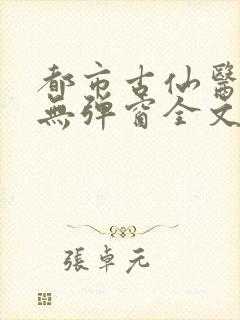 都市古仙醫
無彈窗全文
張卓元